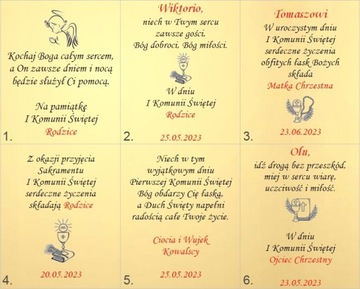 Kochaj Boga całym sercem,
a On zawsze dniem i nocą
będzie służył Ci pomocą.
Na pamiątkę
I Komunii Świętej
Rodzice
1.
Wiktorio,
niech w Twym sercu
zawsze gości,
Bóg dobroci, Bóg miłości.
W dniu
I Komunii Świętej
Rodzice
25.05.2023
2.
Tomaszowi
W uroczystym dniu
I Komunii Świętej
serdeczne życzenia
obfitych łask Bożych
składa
Matka Chrzestna
23.06.2023
3.
Z okazji przyjęcia
Sakramentu
I Komunii Świętej
serdeczne życzenia
składają Rodzice
20.05.2023
4.
Niech w tym
wyjątkowym dniu
Pierwszej Komunii Świętej
Bóg obdarzy Cię łaską,
a Duch Święty napełni
radością całe Twoje życie.
Ciocia i Wujek
Kowalscy
25.05.2023
5.
Olu,
idź drogą bez przeszkód,
miej w sercu wiarę,
uczciwość i miłość.
W dniu
I Komunii Świętej
Ojciec Chrzestny
23.05.2023
6.